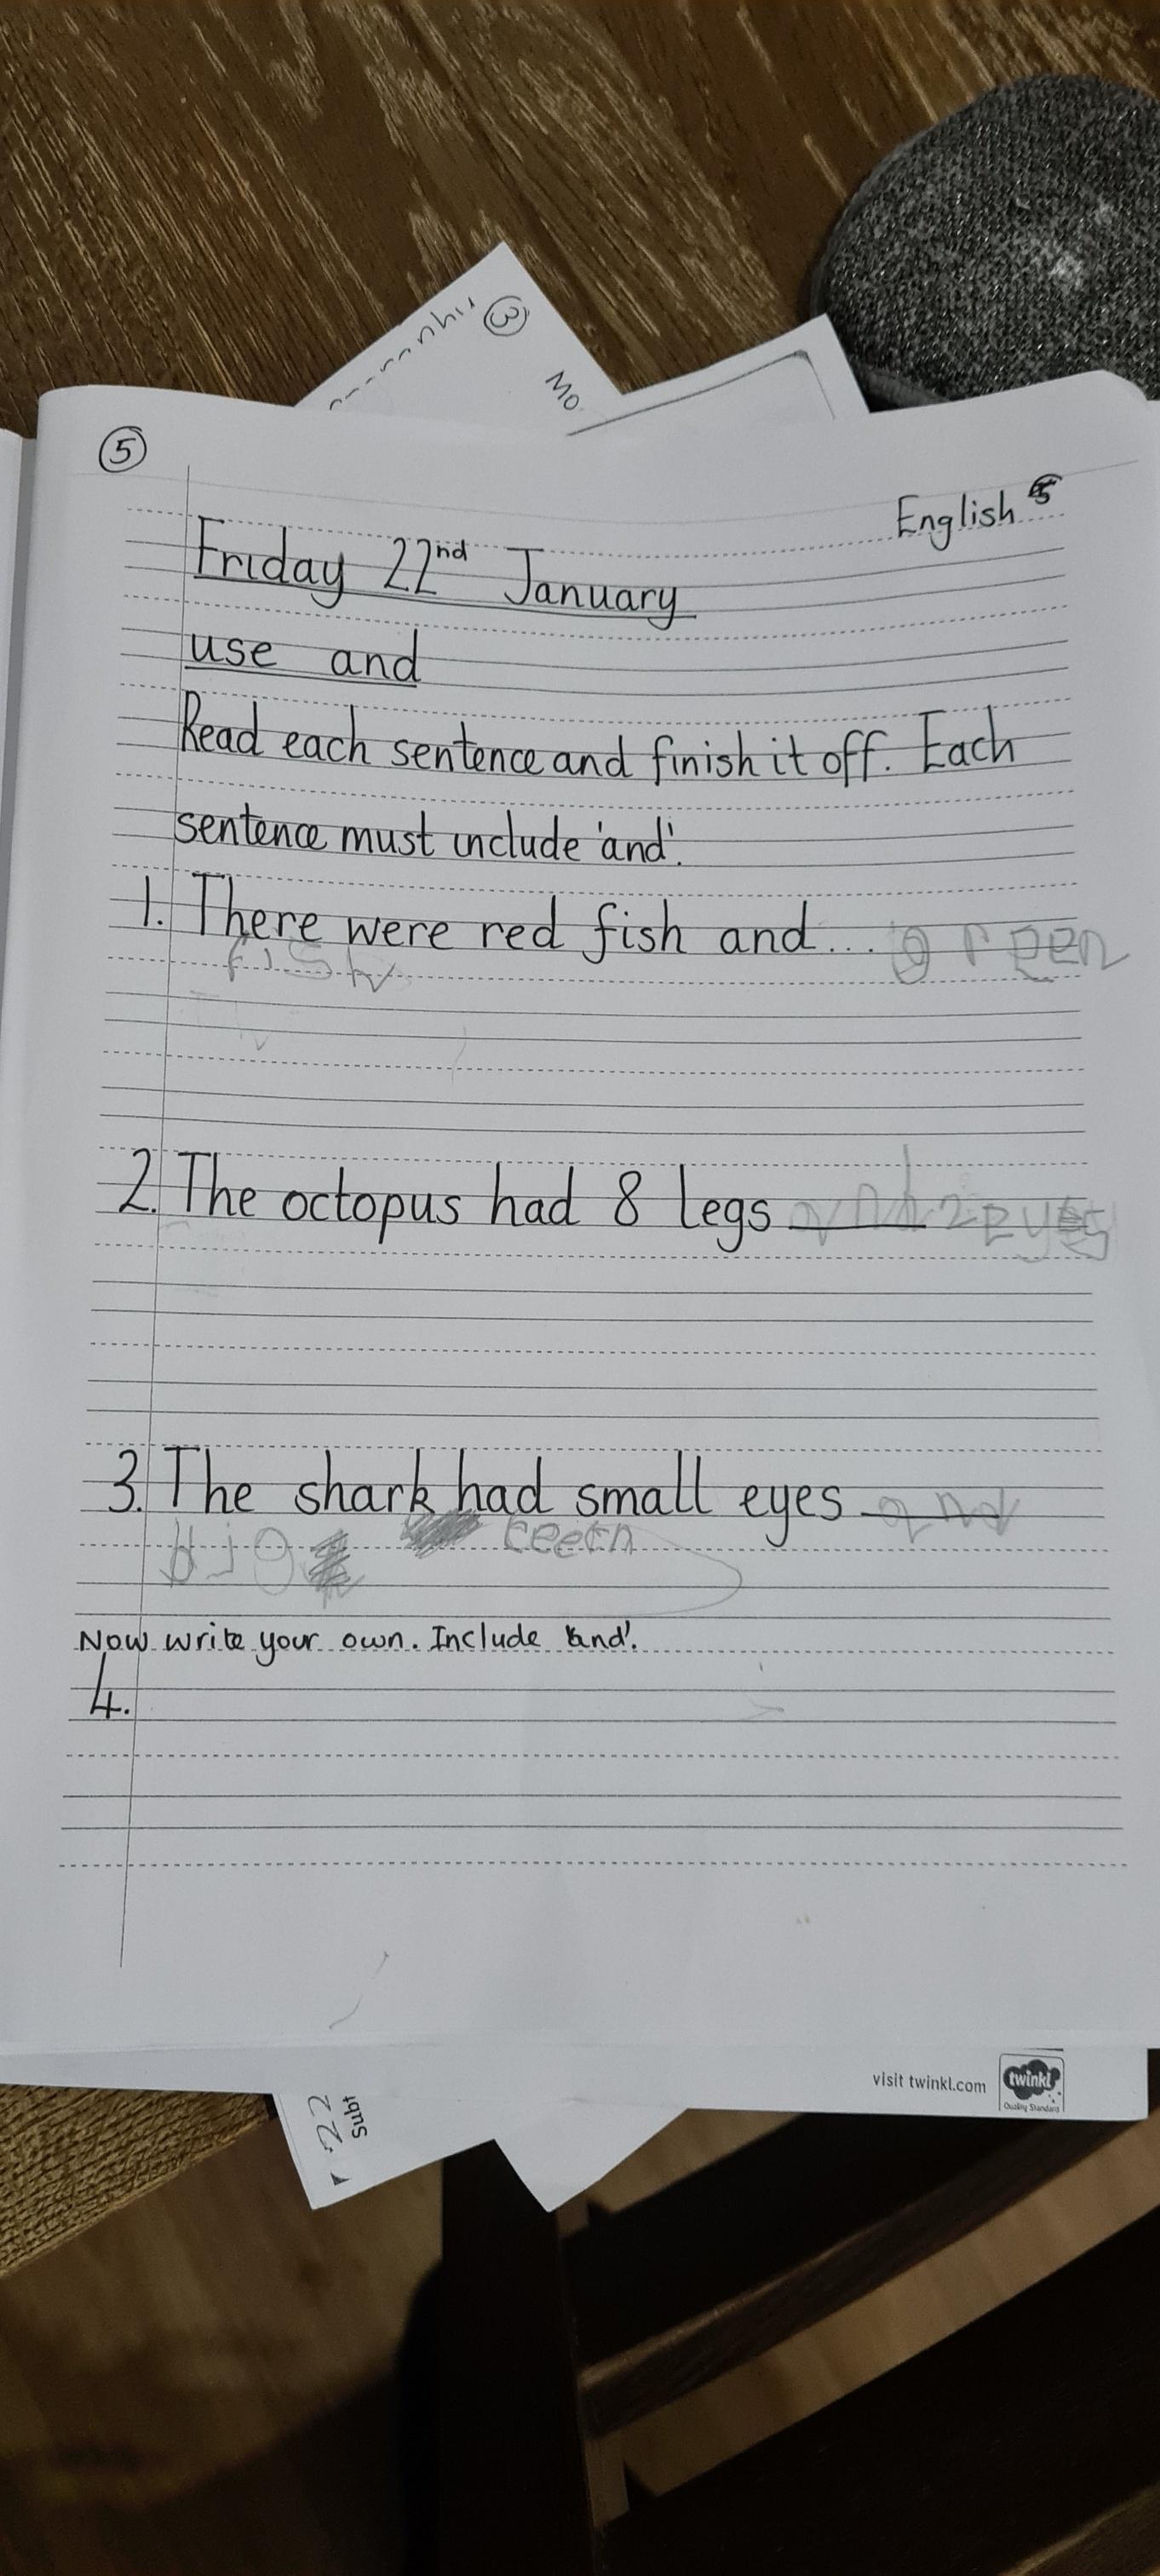 3
Mo
5
English 5
Friday 22nd January
use and
Read each sentence and finish it off. Each
sentence must include 'and'.
1. There were red fish and... green
fish
2. The octopus had 8 legs and 2 eyes
3. The shark had small eyes and
big teeth
Now write your own. Include 'and'.
4.
visit twinkl.com
twinkl
Quality Standard
22
Subt